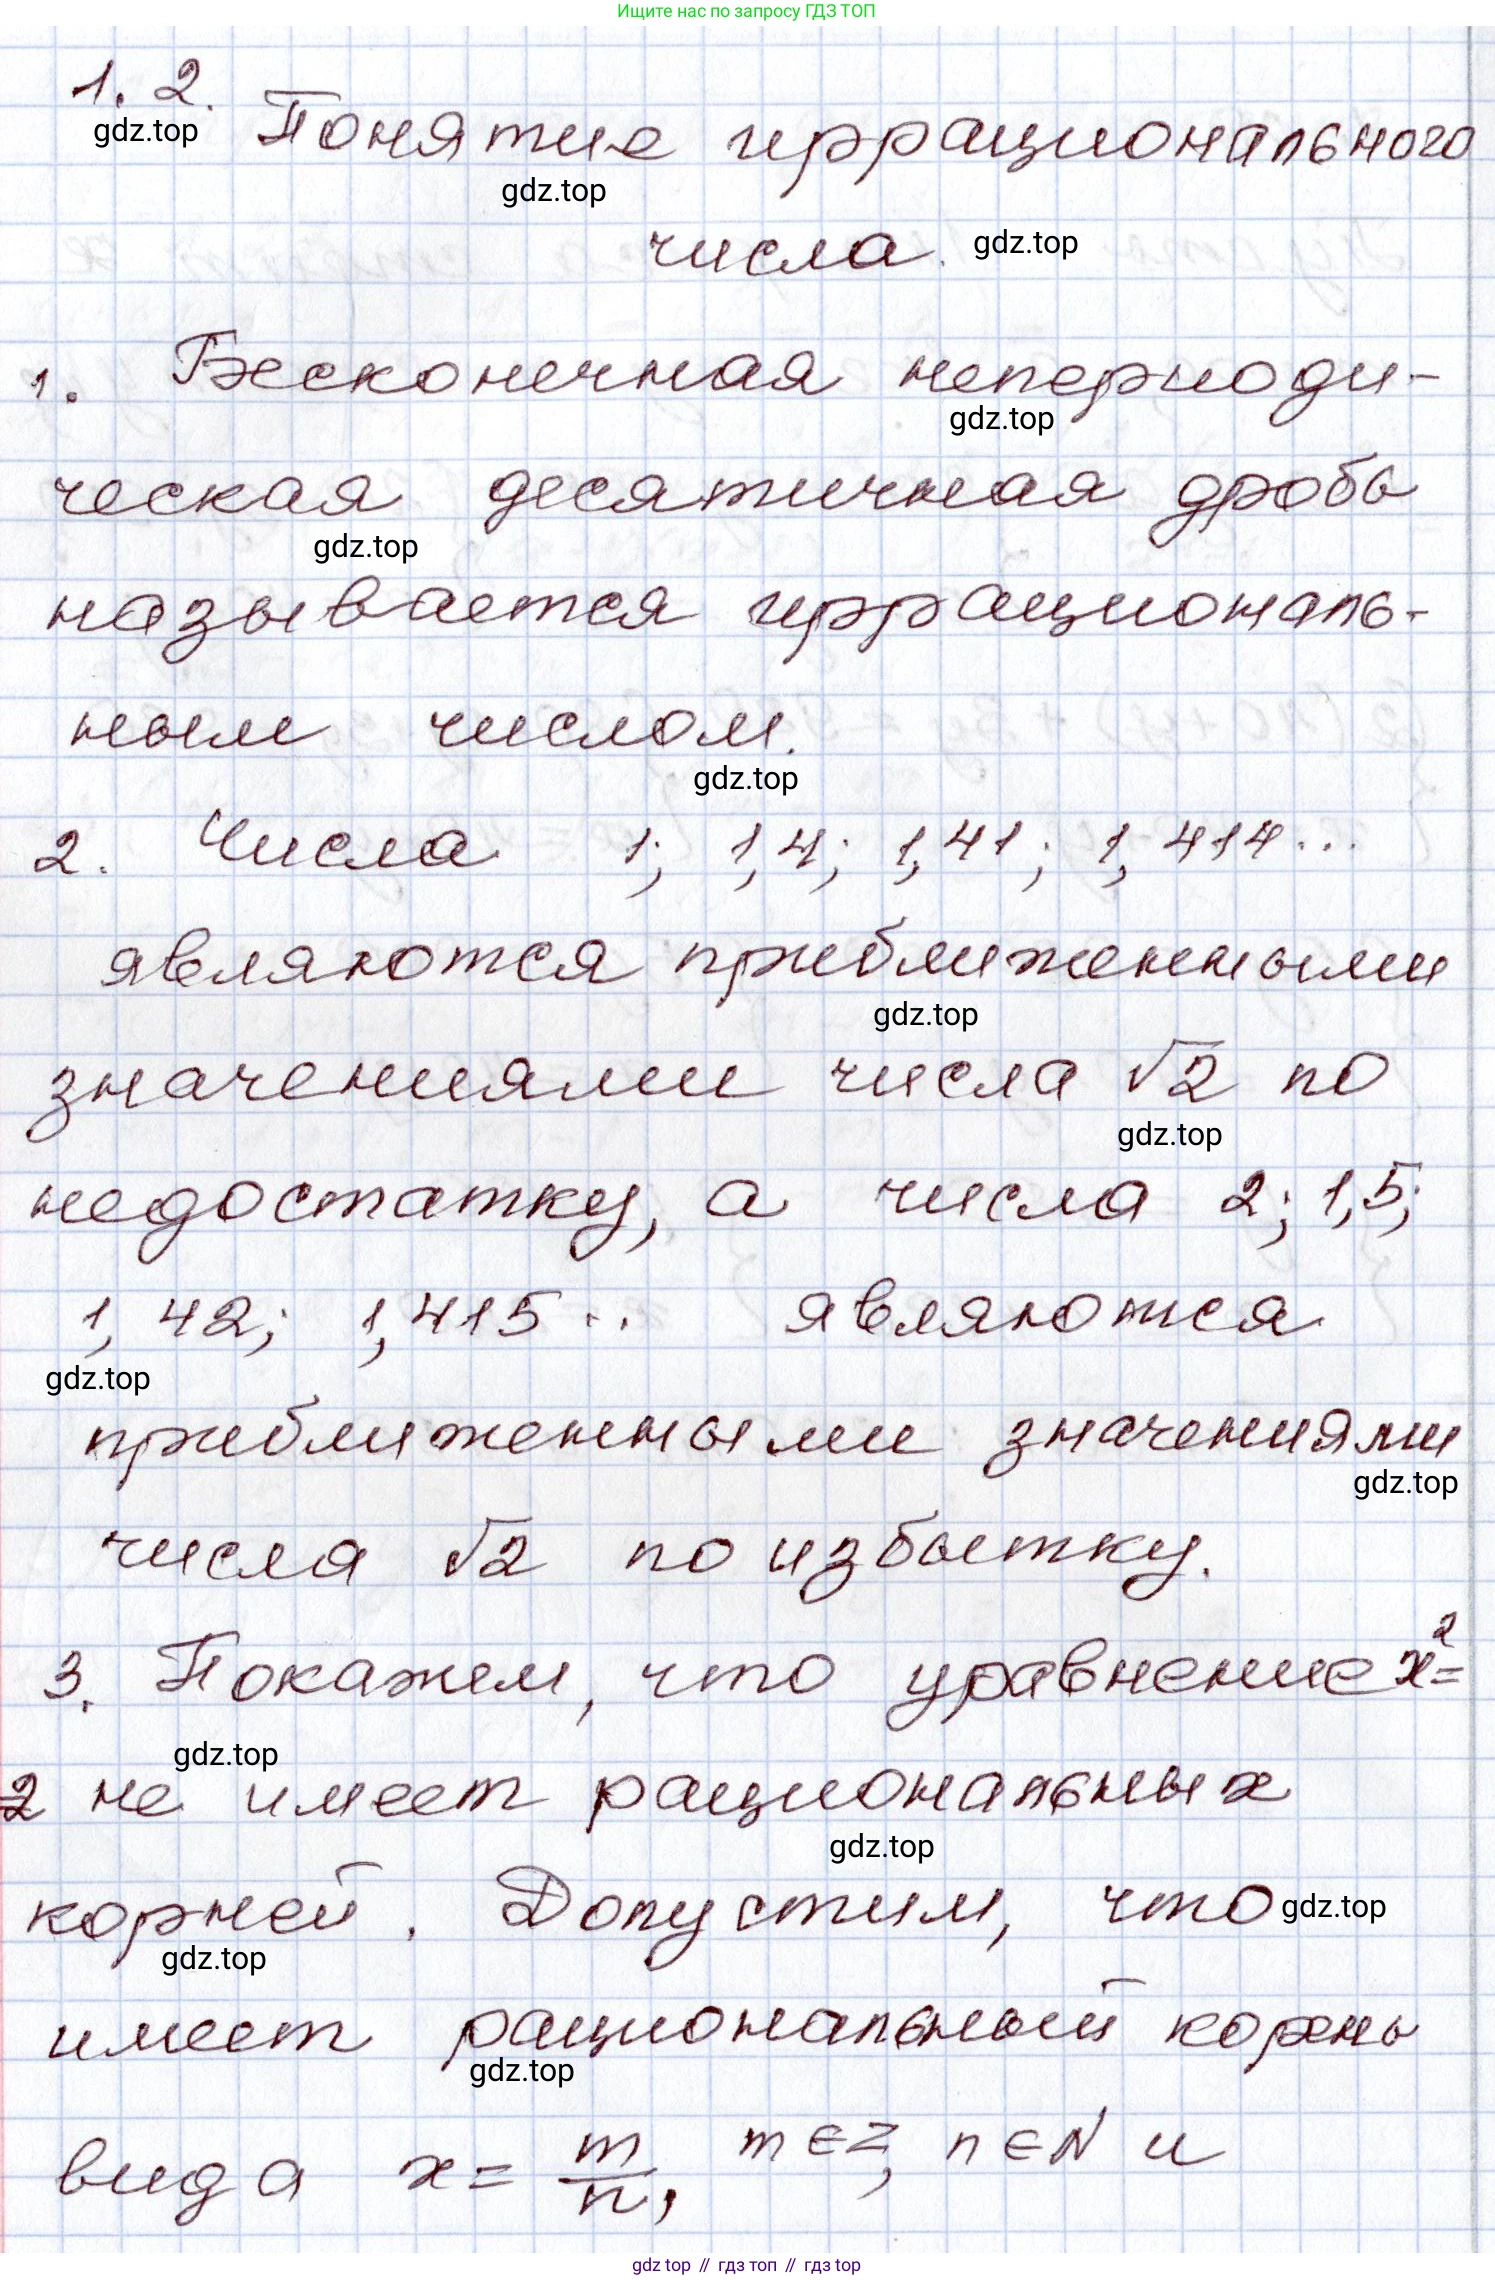 Ищите нас по запросу ГДЗ ТОП
1. 2.
gdz.top
Понятие иррационального
gdz.top
числа. gdz.top
1. Бесконечная непериоди-
gdz.top
ческая десятичная дробь
gdz.top
называется иррациональ-
ным числом.
gdz.top
2. Числа 1; 1,4; 1,41; 1,414...
являются приближенными
gdz.top
значениями числа √2 по
gdz.top
недостатку, а числа 2; 1,5;
1,42; 1,415... являются
gdz.top
приближенными значениями
gdz.top
числа √2 по избытку.
3. Покажем, что уравнение x²=
gdz.top
=2 не имеет рациональных
gdz.top
корней. Допустим, что gdz.top
gdz.top
имеет рациональный корень
gdz.top
вида x = m/n, m ∈ Z, n ∈ N и
gdz.top // гдз топ // гдз top